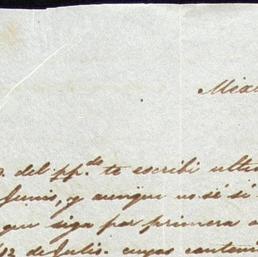 Mexi
del pp.do te escribi ulti
Junio, y aunque no sé si
que siga por primera o
12 de Julio. cuyas